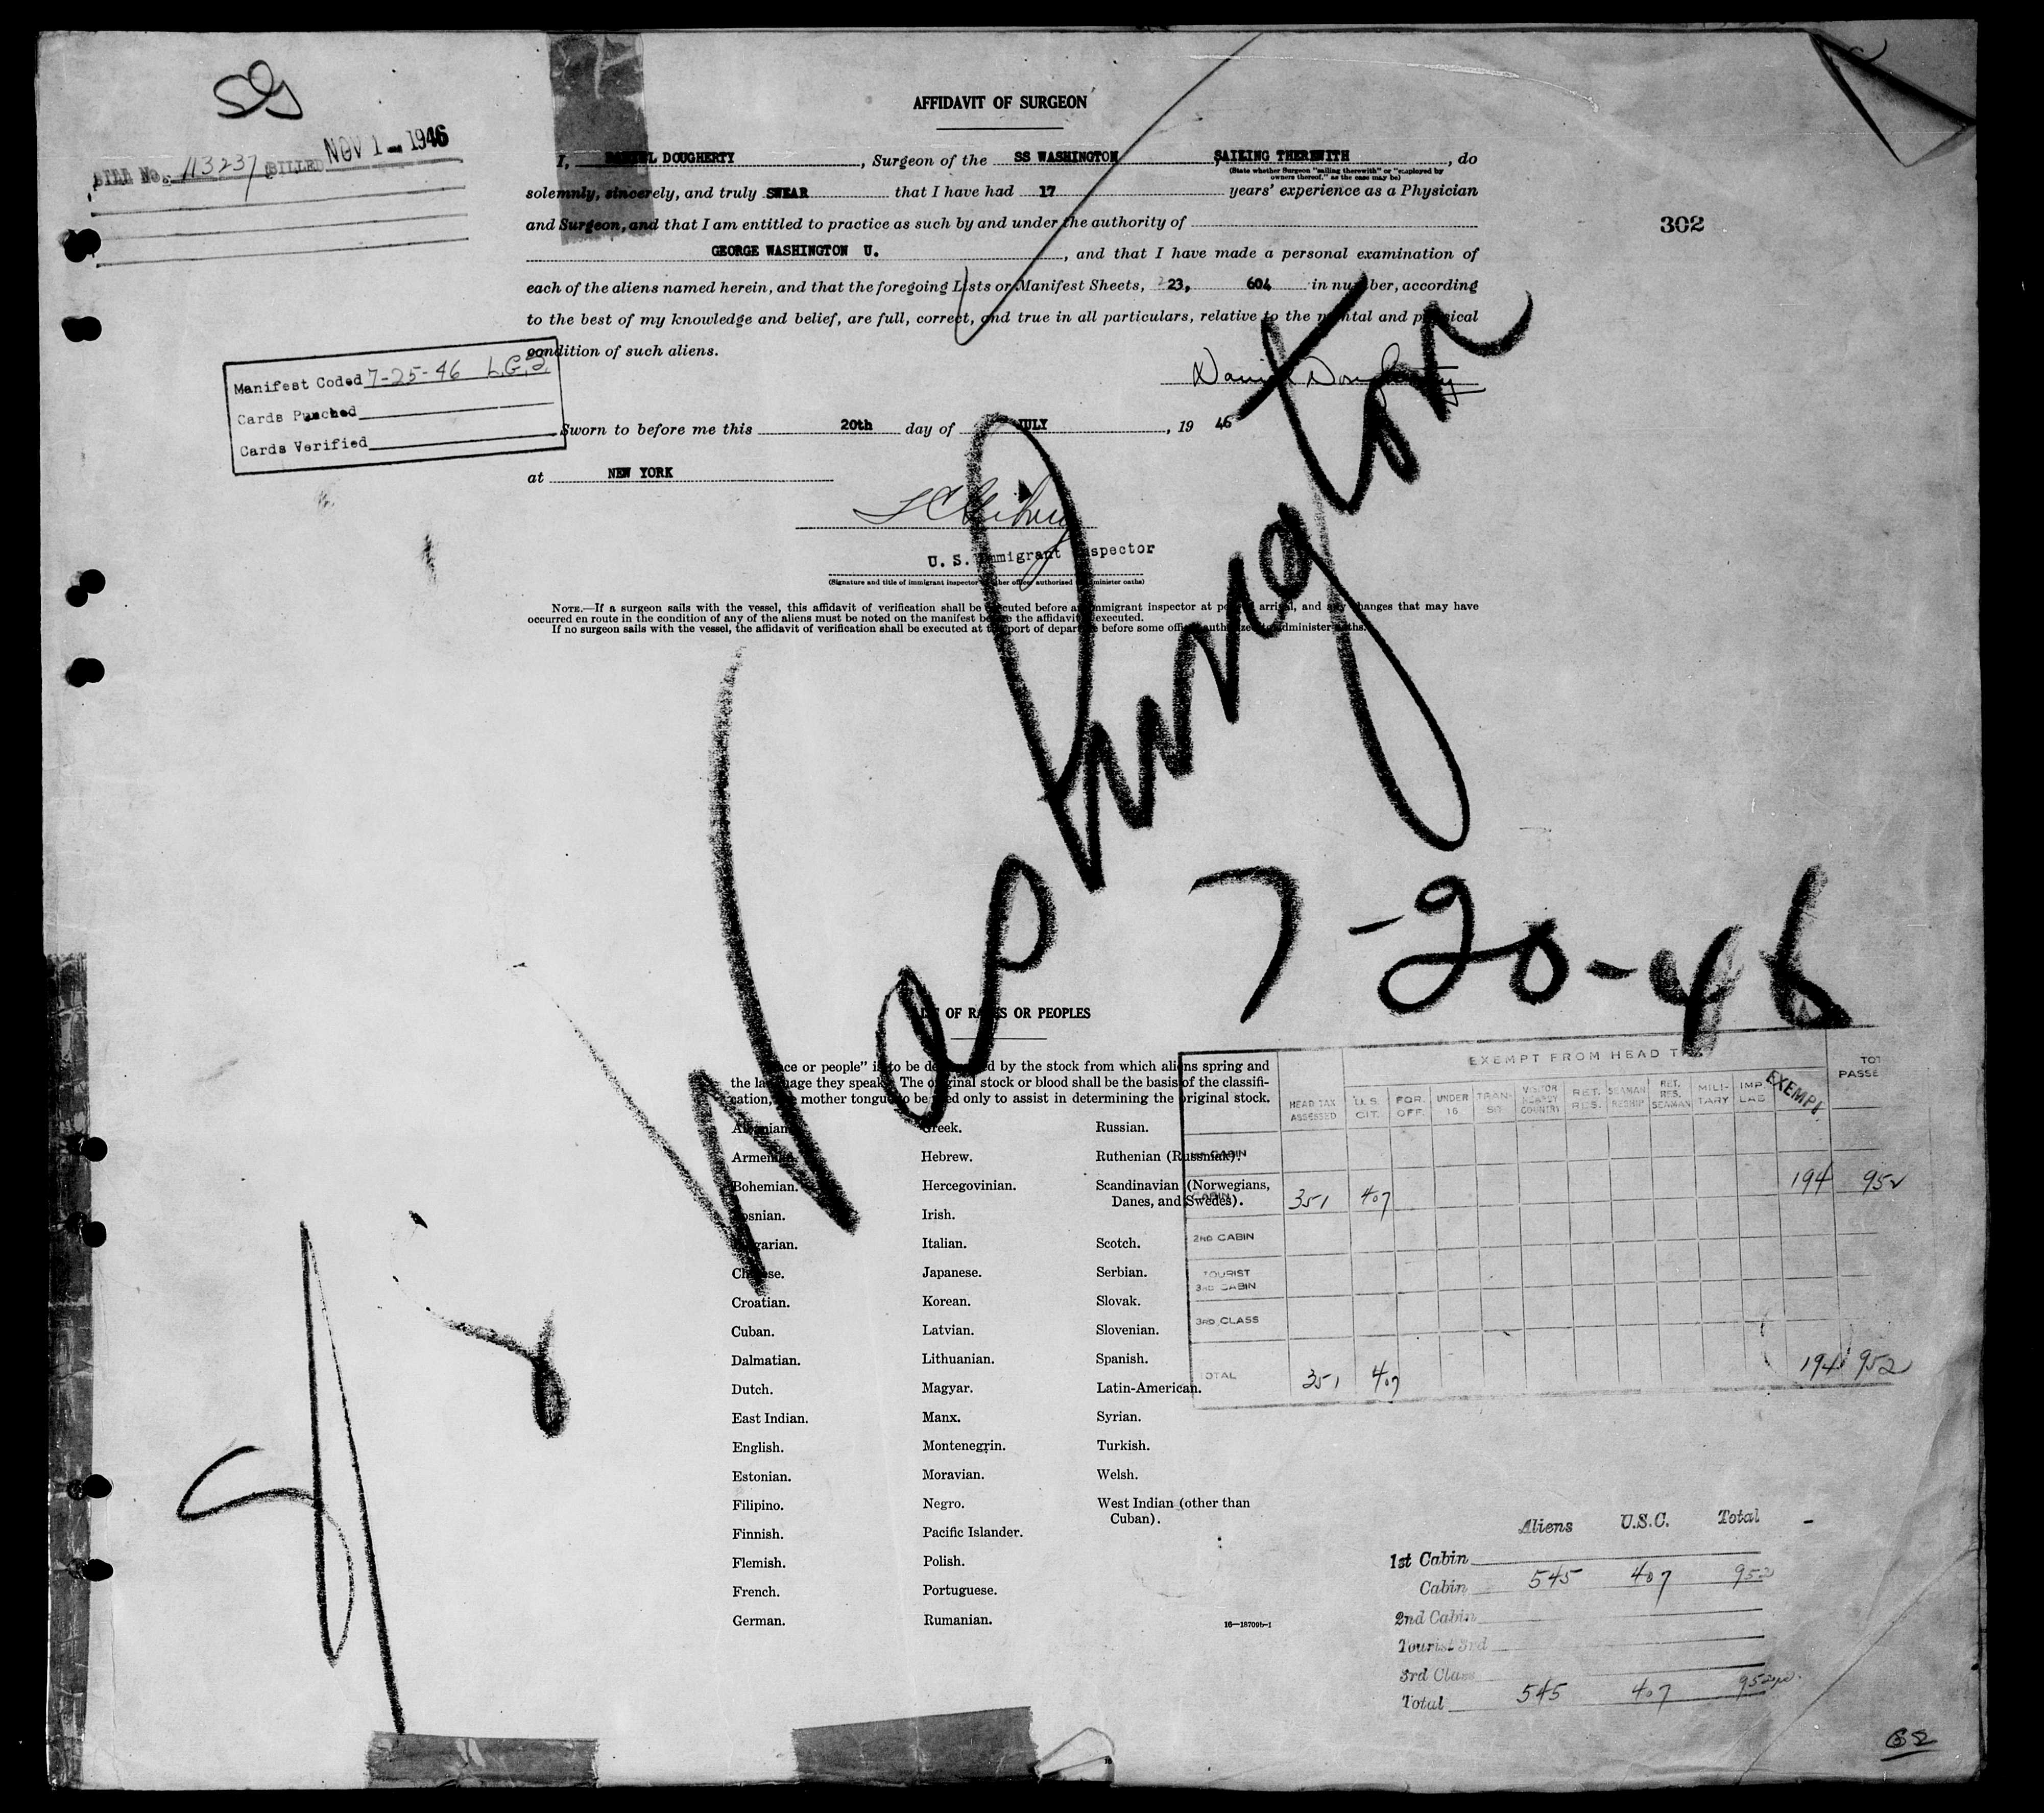 SG
BILL No. 113237 BILLED NOV 1 - 1946
AFFIDAVIT OF SURGEON
I, DANIEL DOUGHERTY, Surgeon of the SS WASHINGTON, SAILING THEREWITH, do
(State whether Surgeon "sailing therewith" or "employed by
owners thereof," as the case may be)
solemnly, sincerely, and truly SWEAR that I have had 17 years' experience as a Physician
and Surgeon, and that I am entitled to practice as such by and under the authority of
GEORGE WASHINGTON U., and that I have made a personal examination of
302
each of the aliens named herein, and that the foregoing Lists or Manifest Sheets, 23, 604 in number, according
to the best of my knowledge and belief, are full, correct, and true in all particulars, relative to the mental and physical
condition of such aliens.
Daniel Dougherty
Manifest Coded 7-25-46 L.G.
Cards Punched
Cards Verified
Sworn to before me this 20th day of JULY, 19 46
at NEW YORK
U. S. Immigrant Inspector
(Signature and title of immigrant inspector or other officer authorized to administer oaths)
NOTE.—If a surgeon sails with the vessel, this affidavit of verification shall be executed before an immigrant inspector at port of arrival, and any changes that may have
occurred en route in the condition of any of the aliens must be noted on the manifest before the affidavit is executed.
If no surgeon sails with the vessel, the affidavit of verification shall be executed at the port of departure before some officer authorized to administer oaths.
SS Washington
7-20-46
LIST OF RACES OR PEOPLES
"Race or people" is to be determined by the stock from which aliens spring and
the language they speak. The original stock or blood shall be the basis of the classifi-
cation, the mother tongue to be used only to assist in determining the original stock.
Albanian. Greek. Russian.
Armenian. Hebrew. Ruthenian (Russniak).
Bohemian. Hercegovinian. Scandinavian (Norwegians,
Danes, and Swedes).
Bosnian. Irish.
Bulgarian. Italian. Scotch.
Chinese. Japanese. Serbian.
Croatian. Korean. Slovak.
Cuban. Latvian. Slovenian.
Dalmatian. Lithuanian. Spanish.
Dutch. Magyar. Latin-American.
East Indian. Manx. Syrian.
English. Montenegrin. Turkish.
Estonian. Moravian. Welsh.
Filipino. Negro. West Indian (other than
Cuban).
Finnish. Pacific Islander.
Flemish. Polish.
French. Portuguese.
German. Rumanian.
16—18709b-1
EXEMPT FROM HEAD TAX
TOT
PASSE
HEAD TAX ASSESSED U.S. CIT. FOR. OFF. UNDER 16 TRAN-SIT VISITOR COUNTRY RET. RES. SEAMAN RESHIP RET. RES. SEAMAN MILI-TARY IMP LAB EXEMPT
1ST CABIN
CABIN 351 407 194 952
2ND CABIN
TOURIST
3RD CABIN
3RD CLASS
TOTAL 351 407 194 952
Aliens U.S.C. Total
1st Cabin
Cabin 545 407 952
2nd Cabin
Tourist 3rd
3rd Class
Total 545 407 952